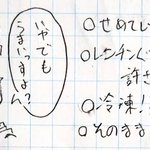 いやでも
うまいっすよん?
○せめて
○レンチン
許さ
○冷凍!
○そのまま